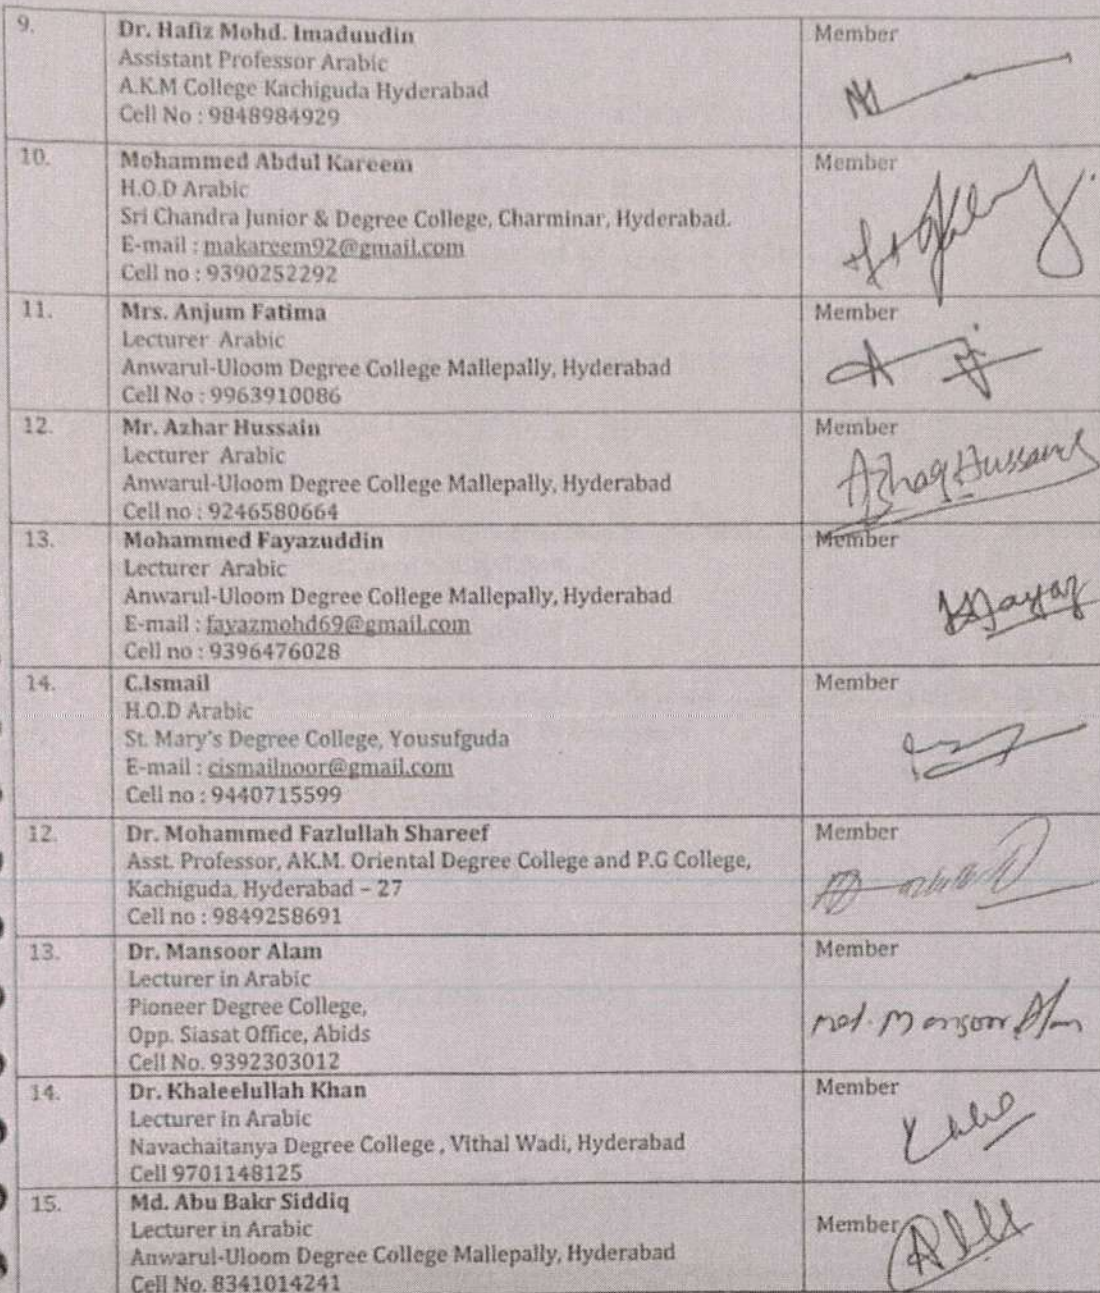 9. Dr. Hafiz Mohd. Imaduudin Member
Assistant Professor Arabic
A.K.M College Kachiguda Hyderabad
Cell No : 9848984929
10. Mohammed Abdul Kareem Member
H.O.D Arabic
Sri Chandra Junior & Degree College, Charminar, Hyderabad.
E-mail : makareem92@gmail.com
Cell no : 9390252292
11. Mrs. Anjum Fatima Member
Lecturer Arabic
Anwarul-Uloom Degree College Mallepally, Hyderabad
Cell No : 9963910086
12. Mr. Azhar Hussain Member
Lecturer Arabic
Anwarul-Uloom Degree College Mallepally, Hyderabad
Cell no : 9246580664
13. Mohammed Fayazuddin Member
Lecturer Arabic
Anwarul-Uloom Degree College Mallepally, Hyderabad
E-mail : fayazmohd69@gmail.com
Cell no : 9396476028
14. C.Ismail Member
H.O.D Arabic
St. Mary's Degree College, Yousufguda
E-mail : cismailnoor@gmail.com
Cell no : 9440715599
12. Dr. Mohammed Fazlullah Shareef Member
Asst. Professor, AK.M. Oriental Degree College and P.G College,
Kachiguda, Hyderabad – 27
Cell no : 9849258691
13. Dr. Mansoor Alam Member
Lecturer in Arabic
Pioneer Degree College,
Opp. Siasat Office, Abids
Cell No. 9392303012
14. Dr. Khaleelullah Khan Member
Lecturer in Arabic
Navachaitanya Degree College , Vithal Wadi, Hyderabad
Cell 9701148125
15. Md. Abu Bakr Siddiq
Lecturer in Arabic Member
Anwarul-Uloom Degree College Mallepally, Hyderabad
Cell No. 8341014241